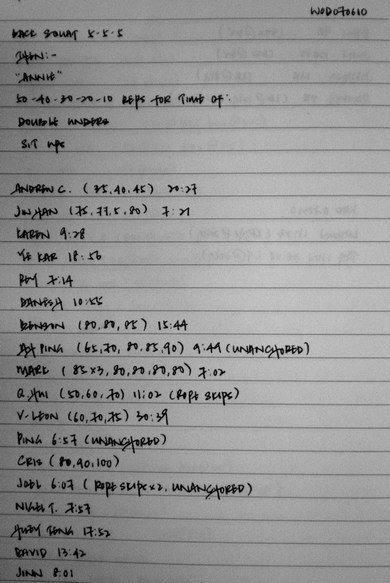 WOD070610
BACK SQUAT 5-5-5
THEN:-
"ANNIE"
50-40-30-20-10 REPS FOR TIME OF:
DOUBLE UNDERS
SIT UPS
ANDREW C. (35,40,45) 20:27
JUNHAN (75,77.5,80) 7:21
KAREN 9:28
YE KAR 18:56
7:14
DANESH 10:55
BENSON (80,80,85) 15:44
AH PING (65,70,80,85,90) 9:44 (UNANCHORED)
MARK (85x3,80,80,80,80) 7:02
Q.HUI (50,60,70) 11:02 (ROPE SKIPS)
V-LEON (60,70,75) 30:39
PING 6:57 (UNANCHORED)
CRIS (80,90,100)
JOEL 6:07 (ROPE SKIPS x2, UNANCHORED)
NIGEL T. 7:57
HUEY TENG 17:52
DAVID 13:42
JINN 8:01